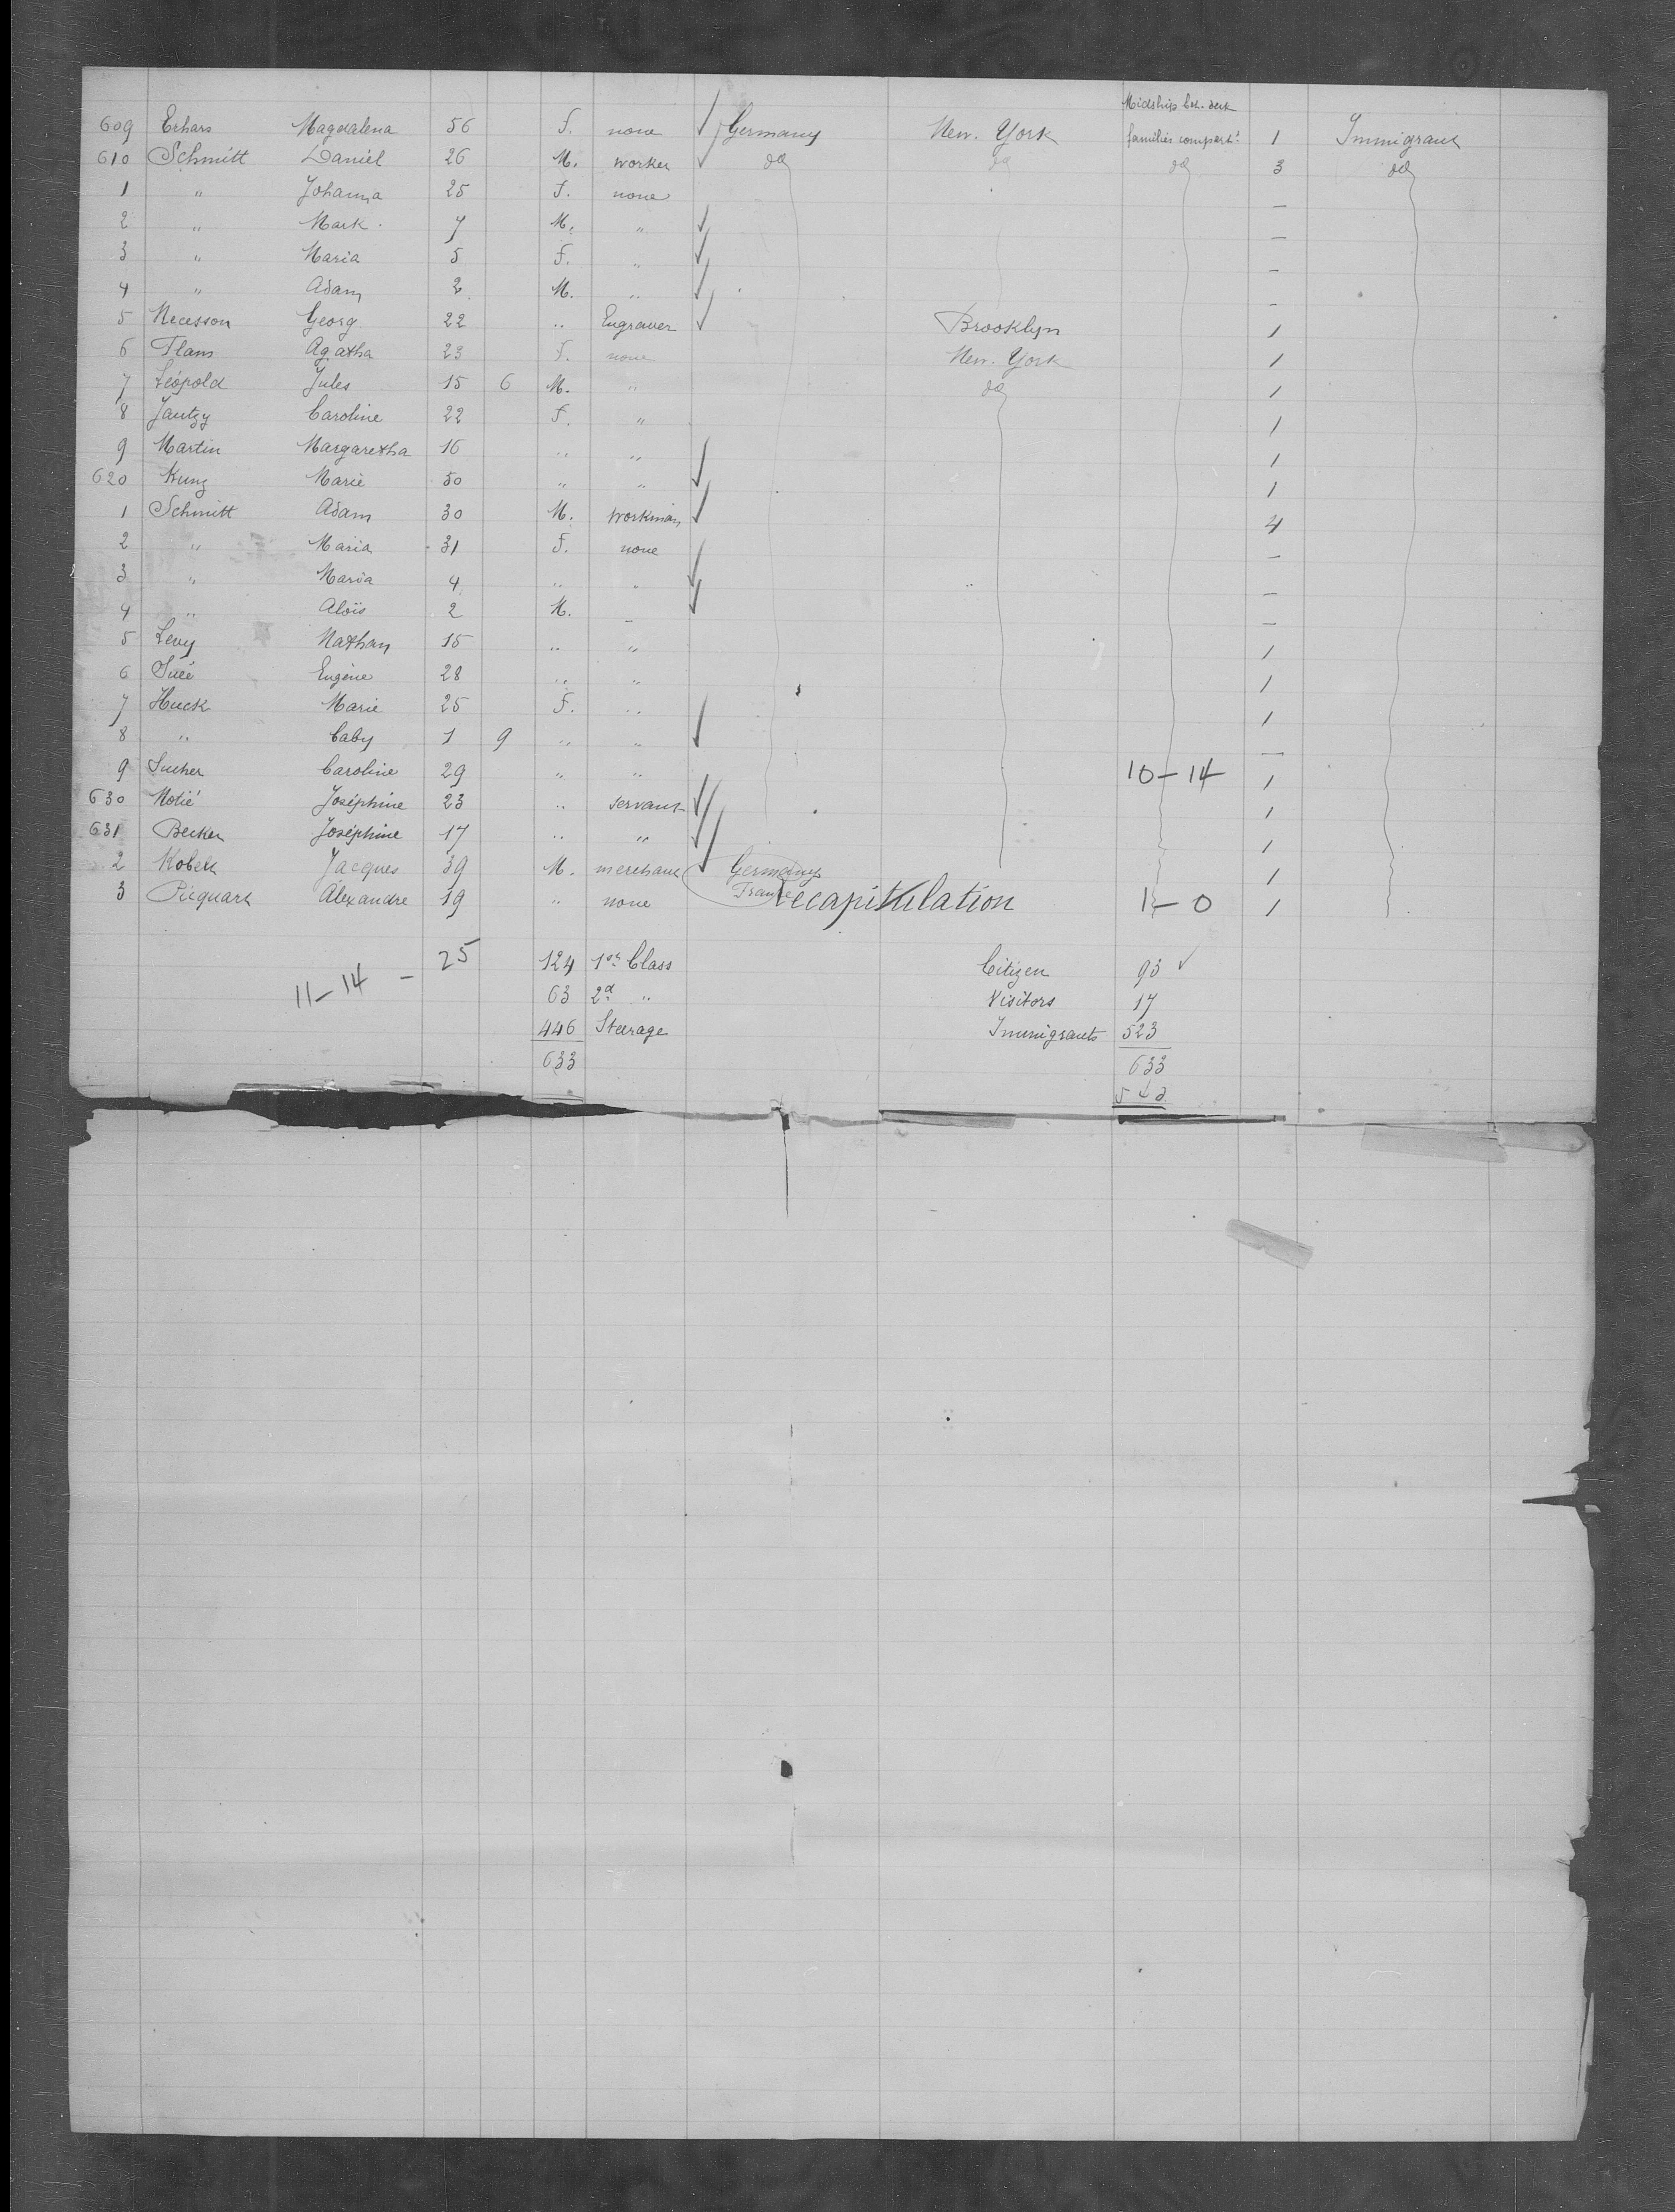 Midship bet. deck
609 Erhars Magdalena 56 F. none Germany New. York families compart.t 1 Immigrant
610 Schmitt Daniel 26 M. worker do do do 3 do
1 " Johanna 25 F. none —
2 " Mark. 7 M. " —
3 " Maria 5 F. " —
4 " Adam 2 M. " —
5 Necesson Georg 22 " Engraver Brooklyn 1
6 Flam Agatha 23 F. none New. York 1
7 Léopold Jules 15 6 M. " do 1
8 Jantzy Caroline 22 F. " 1
9 Martin Margaretha 16 " " 1
620 Kunz Marie 50 " " 1
1 Schmitt Adam 30 M. workman 4
2 " Maria 31 F. none —
3 " Maria 4 " " —
4 " Aloïs 2 M. " —
5 Levy Nathan 15 " " 1
6 Eugène 28 " " 1
7 Huck Marie 25 F. " 1
8 " baby 1 9 " " —
9 Sucher Caroline 29 " " 10–14 1
630 Motié Joséphine 23 " servant 1
631 Becker Joséphine 17 " " 1
2 Kobelt Jacques 39 M. merchant Germany 1
3 Picquart Alexandre 19 " none France 1–0 1
Recapitulation
11–14 – 25
124 1st Class Citizen 93
63 2d " Visitors 17
446 Steerage Immigrants 523
633 633